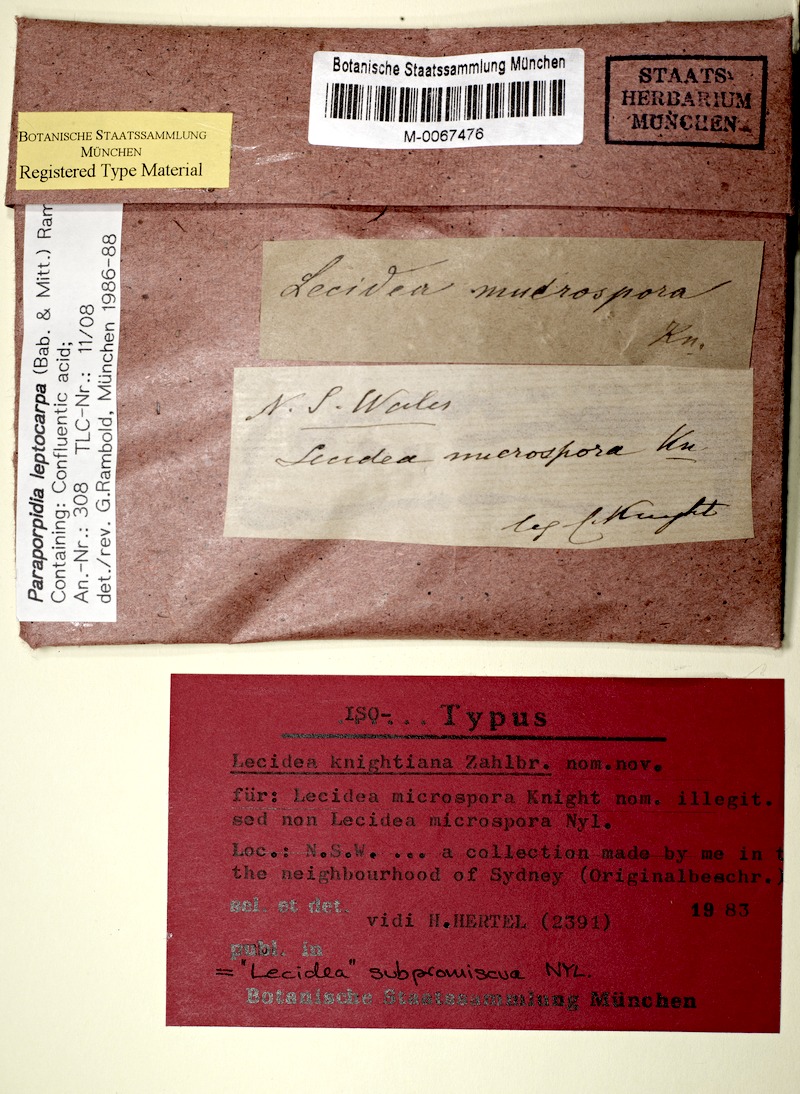 Botanische Staatssammlung München
M-0067476
STAATS-
HERBARIUM
MÜNCHEN
BOTANISCHE STAATSSAMMLUNG
MÜNCHEN
Registered Type Material
Paraporpidia leptocarpa (Bab. & Mitt.) Ram
Containing: Confluentic acid;
An.-Nr.: 308 TLC-Nr.: 11/08
det./rev. G.Rambold, München 1986-88
Lecidea microspora
Kn.
N. S. Wales
Lecidea microspora Kn
leg C Knight
ISO- ... Typus
Lecidea knightiana Zahlbr. nom.nov.
für: Lecidea microspora Knight nom. illegit.
sed non Lecidea microspora Nyl.
Loc.: N.S.W. ... a collection made by me in t
the neighbourhood of Sydney (Originalbeschr.)
sel. et det. 1983
vidi H.HERTEL (2391)
publ. in
= "Lecidea" subpromiscua NYL.
Botanische Staatssammlung München